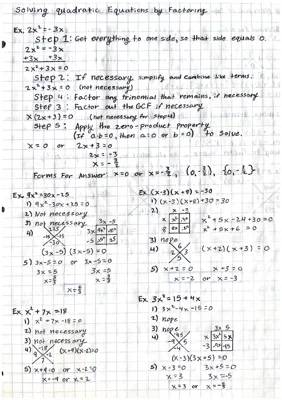 Solving quadratic Equations by Factoring
Ex. 2x² = -3x
Step 1: Get everything to one side, so that side equals 0.
2x² = -3x
+3x +3x
2x² + 3x = 0
Step 2: If necessary, simplify and combine like terms.
2x² + 3x = 0 (not necessary)
Step 4: Factor any trinomial that remains, if necessary
Step 3: Factor out the GCF if necessary.
x(2x+3) = 0 (not necessary for Step 4)
Step 5: Apply the zero-product property
(If a·b = 0, then a = 0 or b = 0) to solve.
x = 0 or 2x + 3 = 0
2x = -3
x = -3/2
Forms For Answer x = 0 or x = -3/2,
Ex. 9x² = 30x - 25
1) 9x² - 30x + 25 = 0
2) Not necessary
3) not necessary
4)
(3x-5)(3x-5) = 0
5) 3x-5 = 0 or 3x-5 = 0
3x = 5 3x = 5
x = 5/3 x = 5/3
x = 5/3
Ex. (x-3)(x+8) = -30
1) (x-3)(x+8) + 30 = 0
2)
x² + 5x - 24 + 30 = 0
x² + 5x + 6 = 0
3) nope
4) (x+2)(x+3) = 0
5) x+2 = 0 x+3 = 0
x = -2 or x = -3
Ex. x² + 7x = 18
1) x² + 7x - 18 = 0
2) Not necessary
3) Not necessary
4) (x+9)(x-2) = 0
5) x+9 = 0 or x-2 = 0
x = -9 or x = 2
Ex. 3x² = 15 + 4x
1) 3x² - 4x - 15 = 0
2) nope
3) nope
4)
(x-3)(3x+5) = 0
5) x-3 = 0 3x+5 = 0
x = 3 3x = -5
x = 3 or x = -5/3